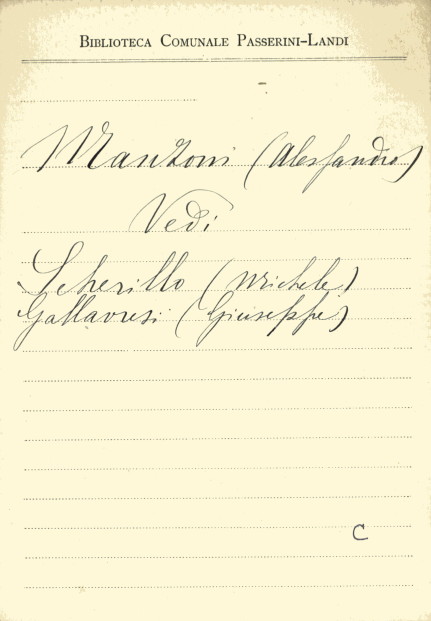 BIBLIOTECA COMUNALE PASSERINI-LANDI
Manzoni (Alessandro)
Vedi
Scherillo (Michele)
Gallavresi (Giuseppe)
C